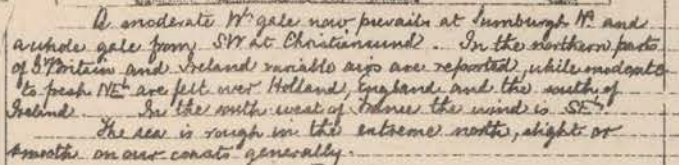 A moderate Wly gale now prevails at Sumburgh Hd. and
a whole gale from SW at Christiansund. In the northern parts
of Gt Britain and Ireland variable airs are reported, while moderate
to fresh NEly are felt over Holland, England and the south of
Ireland. In the south west of France the wind is SEly.
The sea is rough in the extreme north, slight or
smooth on our coasts generally.